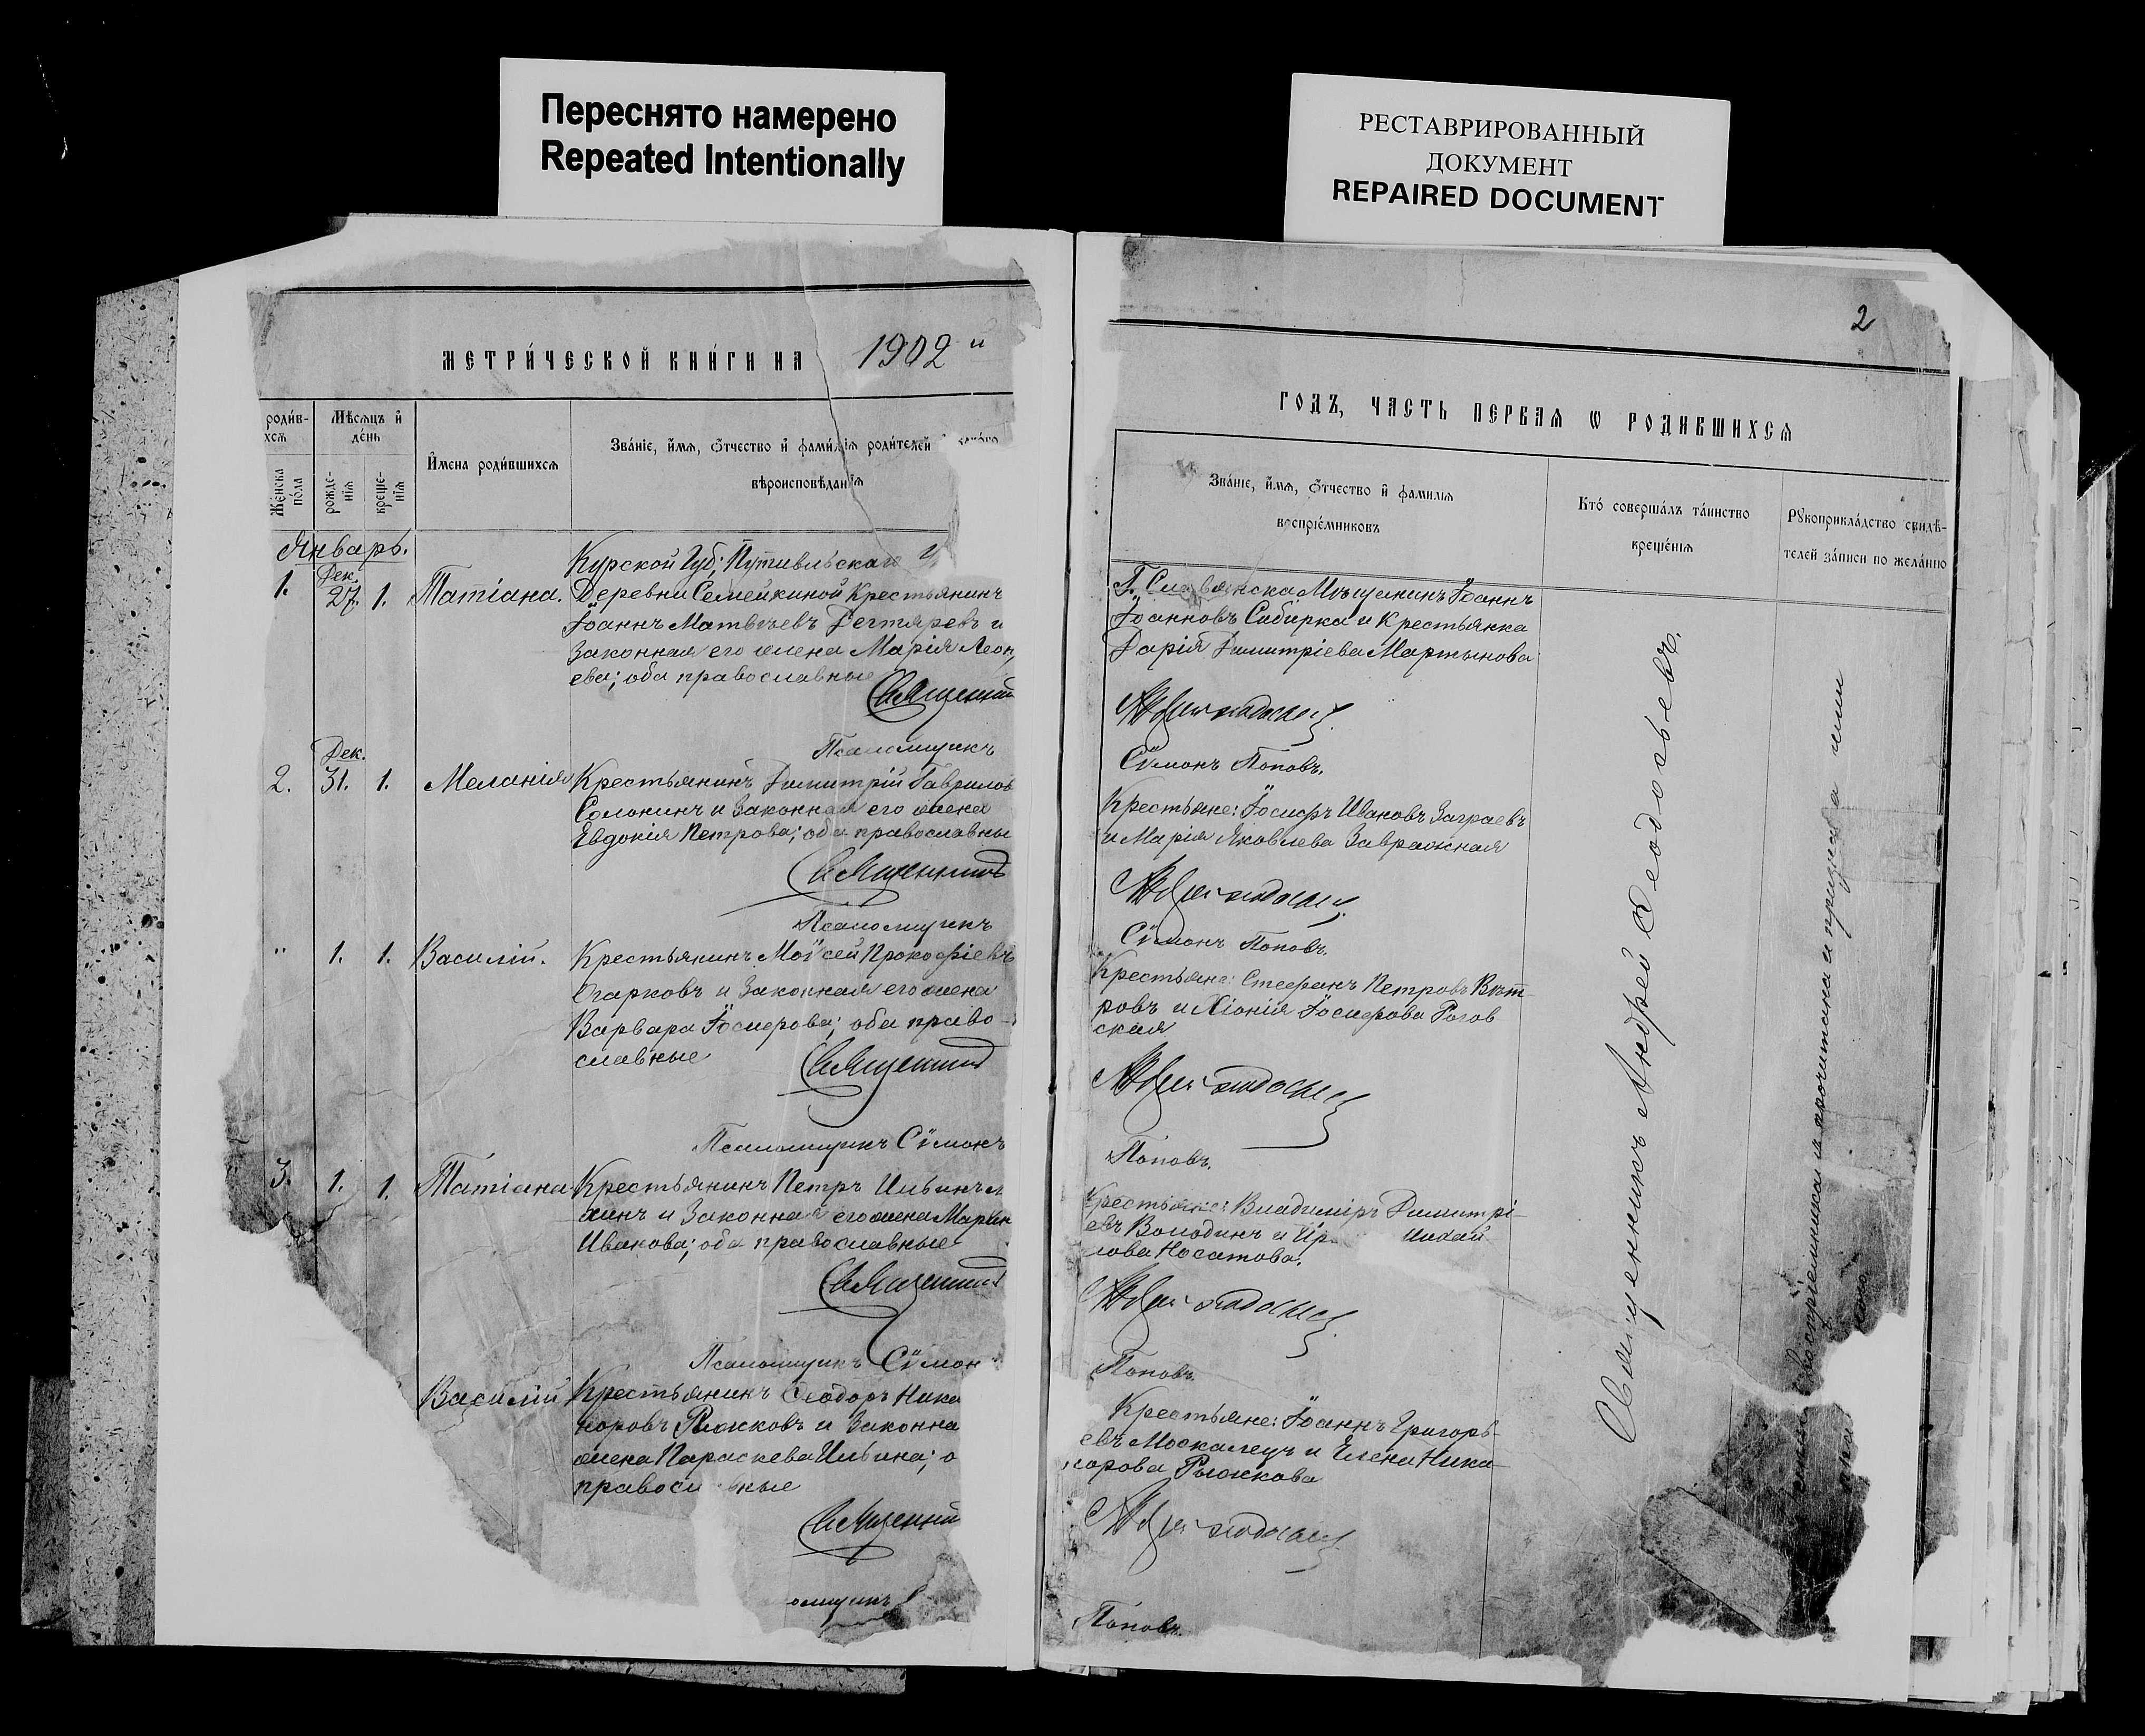 Переснято намерено
Repeated Intentionally
РЕСТАВРИРОВАННЫЙ
ДОКУМЕНТ
REPAIRED DOCUMENT
МЕТРИ́ЧЕСКОЙ КНИ́ГИ НА 1902 й
роди́в-
хсѧ
Же́нска
по́ла
Мѣсѧцъ и҆
де́нь
рожде-
нїѧ
креще-
нїѧ
И҆мена роди́вшихсѧ
Зва́нїе, и҆́мѧ, ѻ҆́тчество и҆ фами́лїѧ роди́телей
вѣроисповѣданїѧ
Январь.
Курской Губ; Путивльскаго
1. Дек. 27. 1. Татіана. Деревни Семейкиной Крестьянинъ
Іоаннъ Матвѣевъ Дегтяревъ и
Законная его жена Марія Леон,
ева; оба православные
Священник
Псаломщикъ
2. Дек. 31. 1. Меланія Крестьянинъ Димитрій Гаврилов
Солонинъ и Законная его жена
Евдокія Петрова; оба православны
Священникъ
Псаломщикъ
" 1. 1. Василій. Крестьянинъ Моѵсей Прокофіевъ
Огарковъ и Законная его жена
Варвара Іосифова; оба право-
славные
Священник
Псаломщикъ Сѵмонъ
3. 1. 1. Татіана Крестьянинъ Петръ Ильинъ
хинъ и Законная его жена Марія
Иванова; оба православные
Священник
Псаломщикъ Сѵмон
Василій Крестьянинъ Ѳеодоръ Ника
норовъ Рыжковъ и Законна
жена Параскева Ильина; о
правосл вные
Священни
омщикъ
2
ГОДЪ, ЧАСТЬ ПЕРВАѦ Ѡ РОДИВШИХСѦ
Зва́нїе, и҆́мѧ, ѻ҆́тчество и҆ фамилїѧ
воспрїе́мниковъ
Кто́ соверша́лъ та́инство
креще́нїѧ
Рꙋкоприкла́дство свидѣ-
телей за́писи по жела́нию
Г. Славянска Мѣщанинъ Іоаннъ
Іоанновъ Сибирка и Крестьянка
Дарія Димитріева Мартынова
Сѵмонъ Поповъ.
Крестьяне: Іосифъ Ивановъ Заграевъ
и Марія Яковлева Завражная
Сѵмонъ Поповъ.
Крестьяне: Стефанъ Петровъ Вѣт-
ровъ и Хіонія Іосифова Рогов
ская
Поповъ.
Крестьяне: Владиміръ Димитрі-
евъ Володинъ и Ир Михай
лова Носатова.
Поповъ.
Крестьяне: Іоаннъ Григорь-
евъ Москалецъ и Елена Ника
норова Рыжкова
Поповъ.
Священникъ Андрей Ѳеодосьевъ.